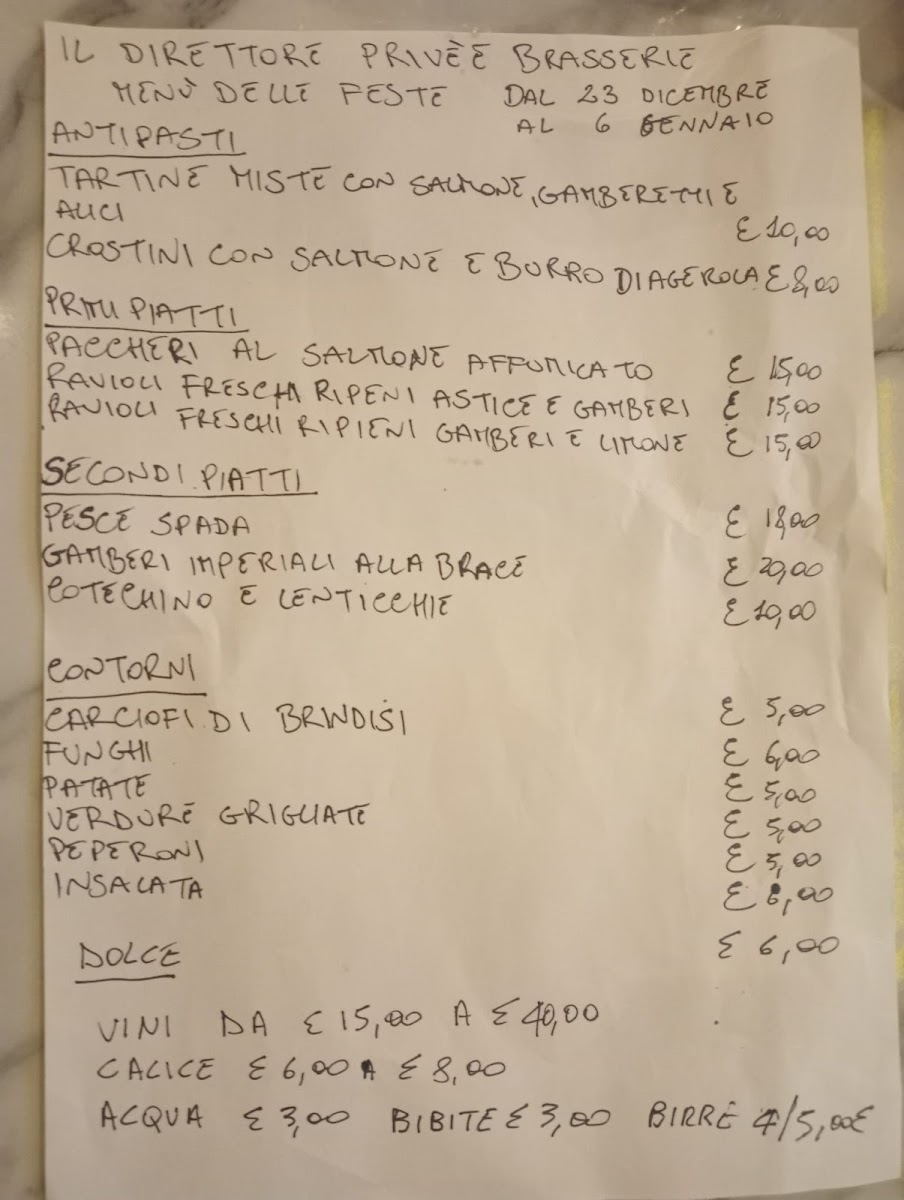 IL DIRETTORE PRIVÈE BRASSERIE
MENÙ DELLE FESTE DAL 23 DICEMBRE
AL 6 GENNAIO
ANTIPASTI
TARTINE MISTE CON SALMONE, GAMBERETTI E
ALICI € 10,00
CROSTINI CON SALMONE E BURRO DI AGEROLA € 8,00
PRIMI PIATTI
PACCHERI AL SALMONE AFFUMICATO € 15,00
RAVIOLI FRESCHI RIPENI ASTICE E GAMBERI € 15,00
RAVIOLI FRESCHI RIPIENI GAMBERI E LIMONE € 15,00
SECONDI PIATTI
PESCE SPADA € 18,00
GAMBERI IMPERIALI ALLA BRACE € 20,00
COTECHINO E LENTICCHIE € 10,00
CONTORNI
CARCIOFI DI BRINDISI € 5,00
FUNGHI € 6,00
PATATE € 5,00
VERDURE GRIGLIATE € 5,00
PEPERONI € 5,00
INSALATA €
DOLCE € 6,00
VINI DA € 15,00 A € 40,00
CALICE € 6,00 A € 8,00
ACQUA € 3,00 BIBITE € 3,00 BIRRE 4/5,00€